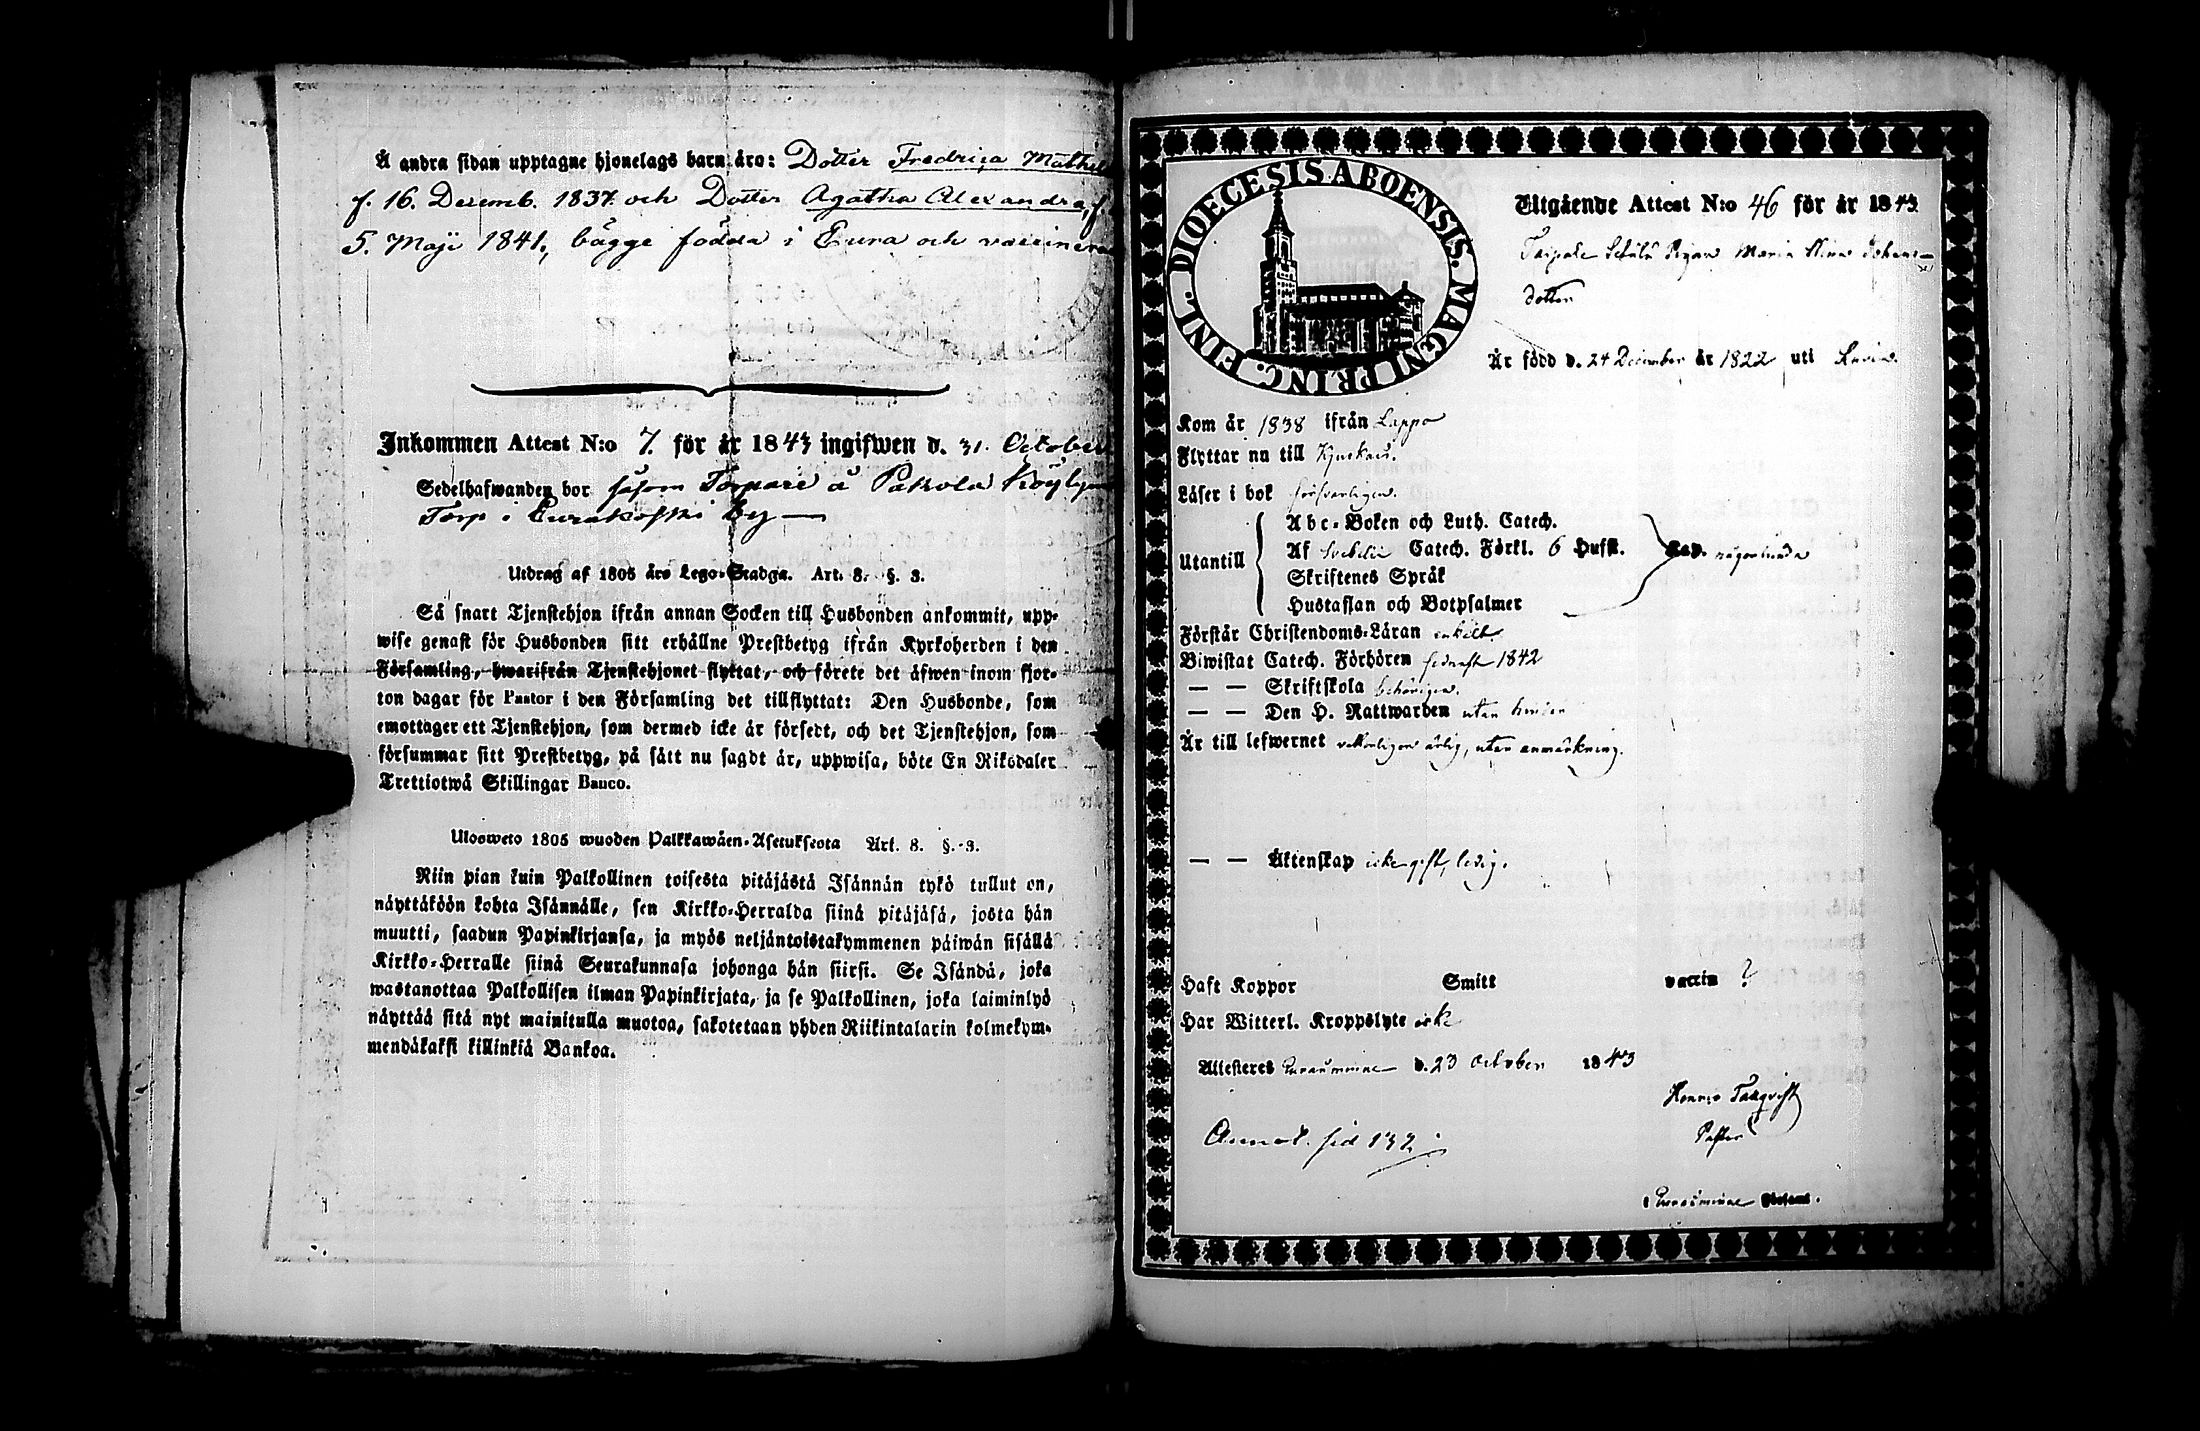 Å andra sidan upptagne hjonelags barn äro: Dotter Fredrica Mathil
f. 16. Decemb. 1837. och Dotter Agatha Alexandra, f.
5. Maji 1841, bägge födda i Eura och vaccinera
Inkommen Attest N:o 7. för år 1843 ingifwen d. 31. October
Sedelhafwanden bor såsom Torpare å Pakola Köyly
Torp i Eurakoski by
Utdrag af 1805 års Lego-Stadga. Art. 8. §. 3.
Så snart Tjenstehjon ifrån annan Socken till Husbonden ankommit, upp-
wise genast för Husbonden sitt erhållne Prestbetyg ifrån Kyrkoherden i den
Församling, hwarifrån Tjenstehjonet flyttat, och förete det äfwen inom fjor-
ton dagar för Pastor i den Församling det tillflyttat: Den Husbonde, som
emottager ett Tjenstehjon, som dermed icke är försedt, och det Tjenstehjon, som
försummar sitt Prestbetyg, på sätt nu sagdt är, uppwisa, böte En Riksdaler
Trettiotwå Skillingar Banco.
Ulosweto 1805 wuoden Palkkawäen-Asetuksesta Art. 8. §. 3.
Niin pian kuin Palkollinen toisesta pitäjästä Isännän tykö tullut on,
näyttäköön kohta Isännälle, sen Kirkko-Herralda siinä pitäjäsä, josta hän
muutti, saadun Papinkirjansa, ja myös neljäntoistakymmenen päiwän sisällä
Kirkko-Herralle siinä Seurakunnasa johonga hän siirsi. Se Isändä, joka
wastanottaa Palkollisen ilman Papinkirjata, ja se Palkollinen, joka laiminlyö
näyttää sitä nyt mainitulla muotoa, sakotetaan yhden Riikintalarin kolmekym-
mendäkaksi killinkiä Bankoa.
DIOECESIS ABOENSIS. MAGNI PRINC. FINL.
Utgående Attest N:o 46 för år 1843
Pigan Maria Stina Johans-
dotter
Är född d. 24 December år 1822 uti
Kom år 1838 ifrån Lappo
Flyttar nu till Kjukais.
Läser i bok försvarligen.
Abc-Boken och Luth. Catech.
Utantill Af Svebelii Catech. Förkl. 6 Hufst. Kap. någorlunda
Skriftenes Språk
Hustaflan och Botpsalmer
Förstår Christendoms-Läran enkelt
Biwistat Catech. Förhören sednast 1842
— — Skriftskola behörigen.
— — Den H. Nattwarden utan hinder
Är till lefwernet veterligen ärlig, utan anmärkning.
— — Äktenskap icke gift, ledig.
Haft Koppor Smitt vaccin ?
Har Witterl. Kroppslyte ick
Attesteras Euraåminne d. 23 October 1843
Pastor
Annot. sid 132
i Euraåminne Församl.